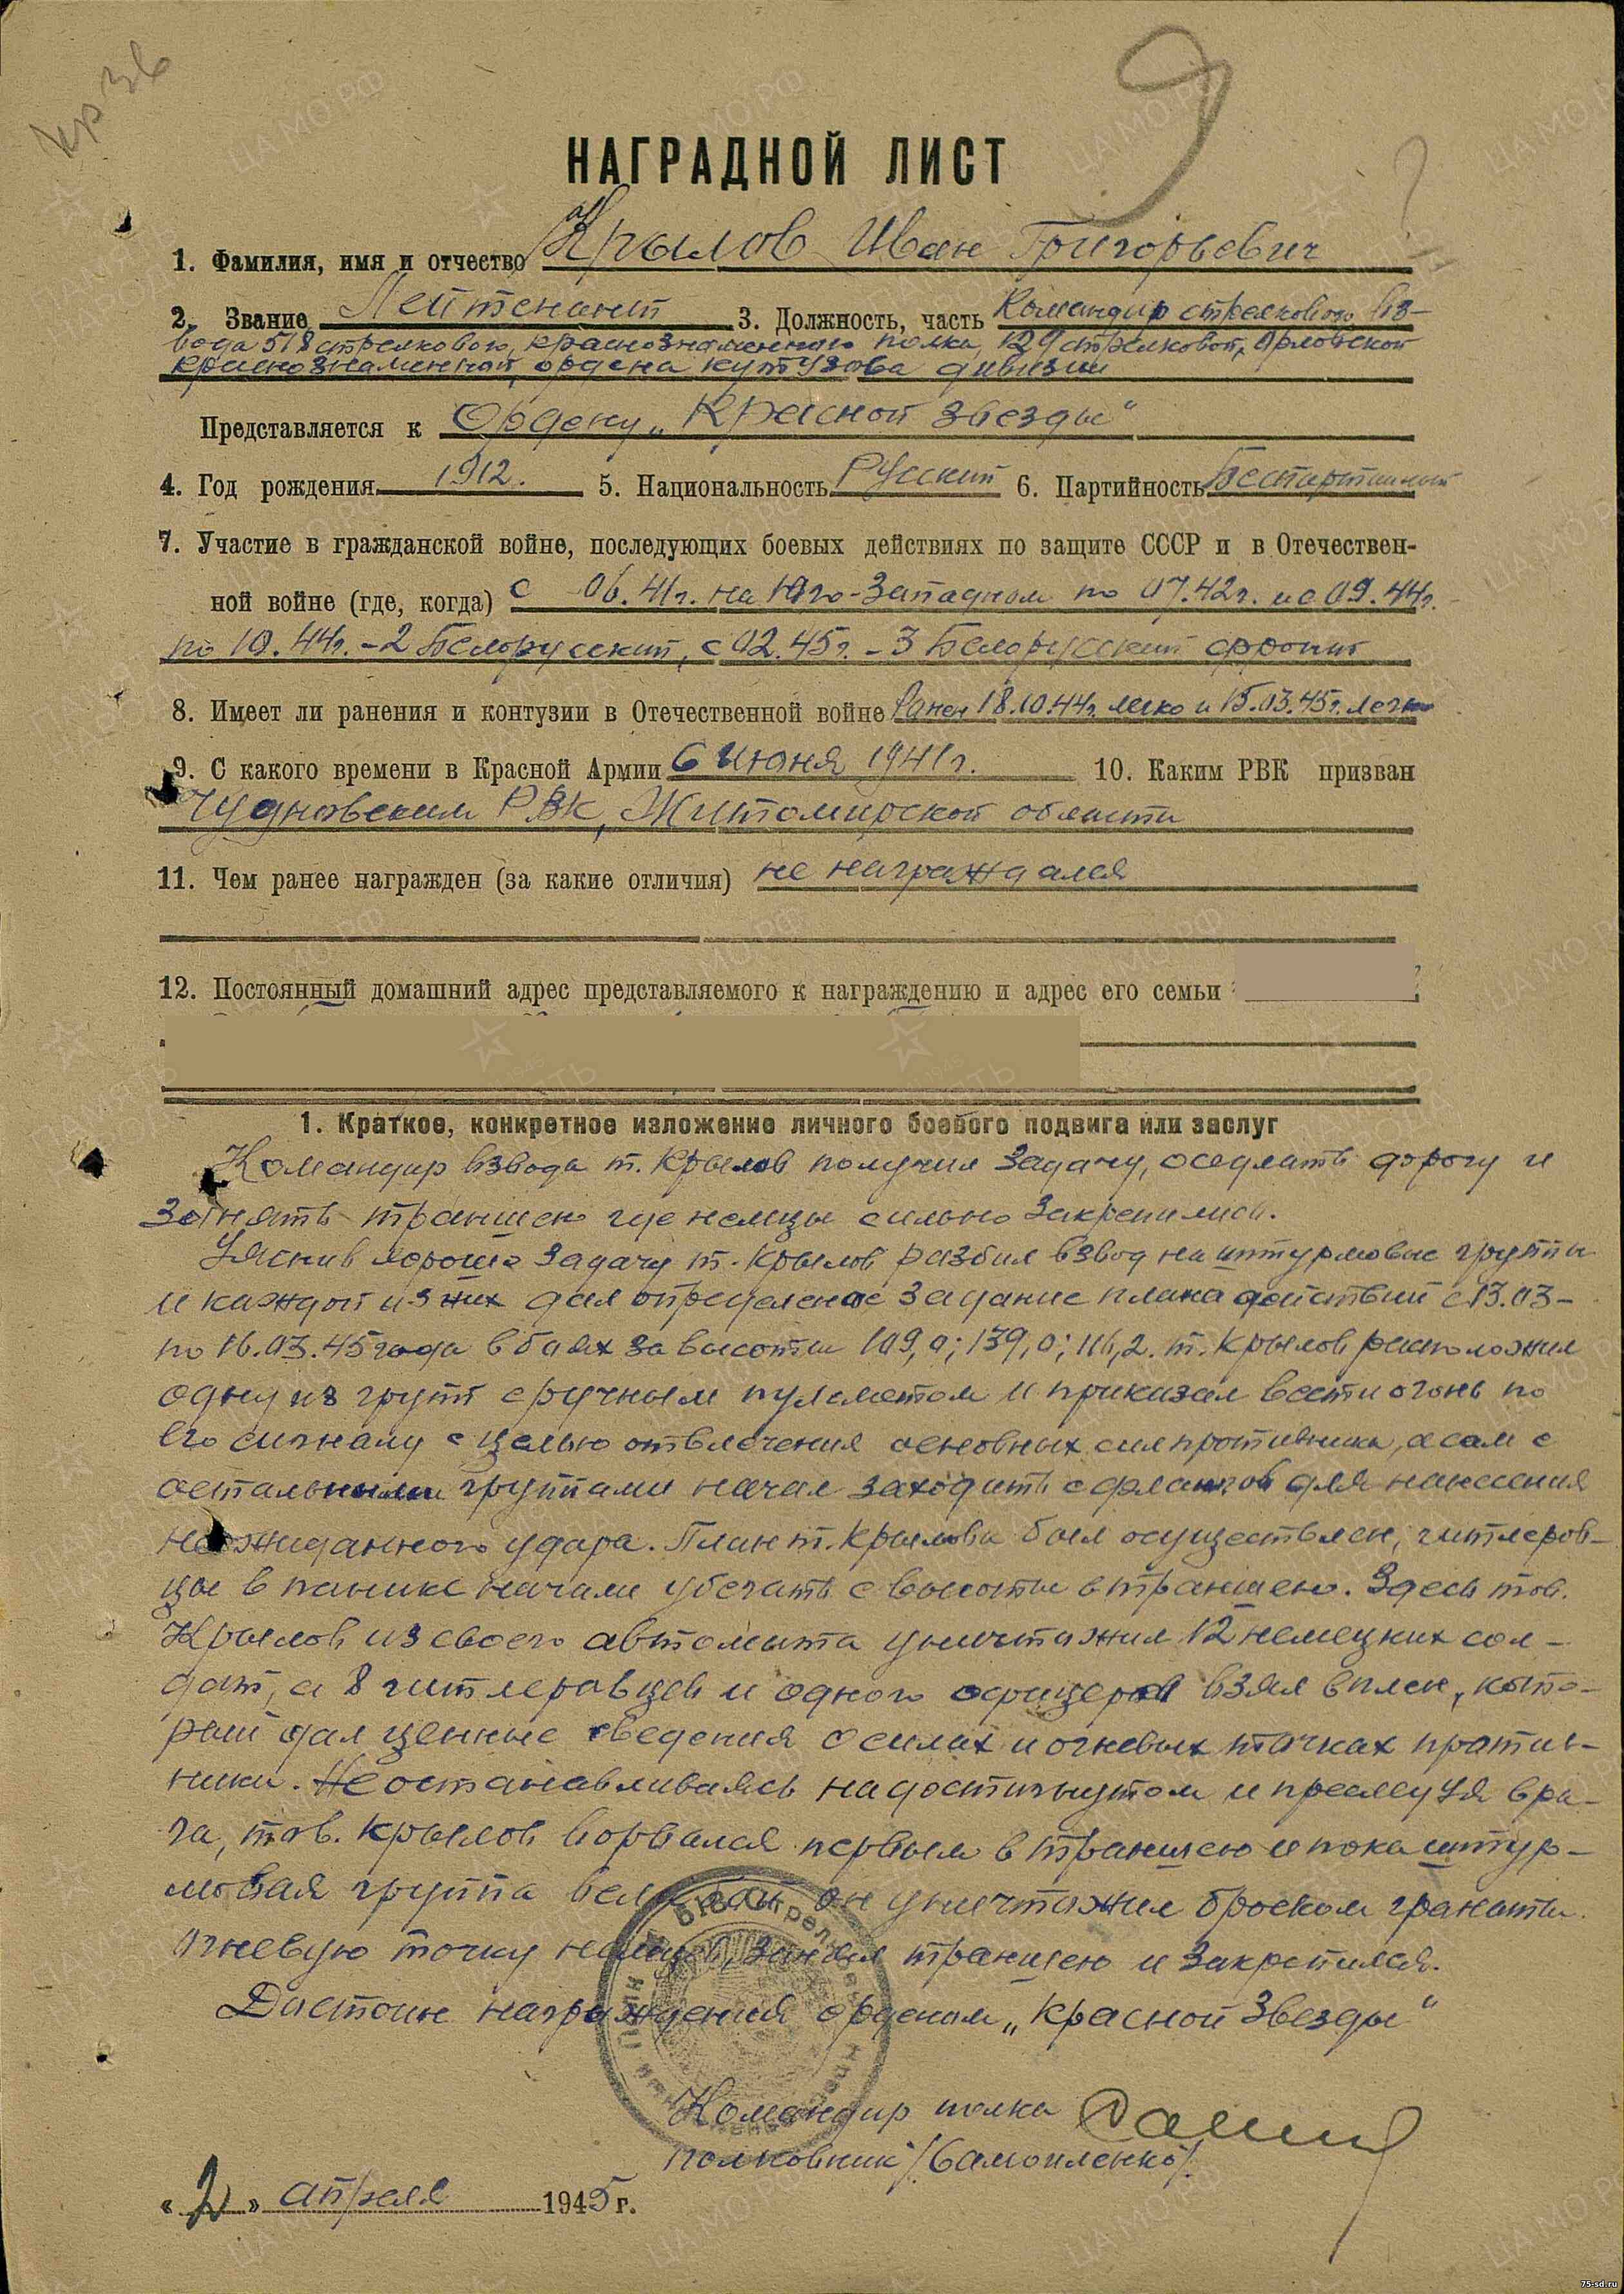 кр Зв
9
НАГРАДНОЙ ЛИСТ
1. Фамилия, имя и отчество Крылов Иван Григорьевич
2. Звание Лейтенант 3. Должность, часть Командир стрелкового вз-
вода 518 стрелкового, краснознаменного полка, 129 стрелковой, Орловской
краснознаменной, ордена кутузова дивизии
Представляется к Ордену „Красной звезды"
4. Год рождения 1912. 5. Национальность Русский 6. Партийность Беспартийный
7. Участие в гражданской войне, последующих боевых действиях по защите СССР и в Отечествен-
ной войне (где, когда) С 06.41г. на Юго-Западном по 07.42г. и с 09.44г.
по 10.44г. - 2 Белорусский, с 02.45г. - 3 Белорусский фронт
8. Имеет ли ранения и контузии в Отечественной войне Ранен 18.10.44г. легко и 15.03.45г. легко
9. С какого времени в Красной Армии 6 июня 1941г. 10. Каким РВК призван
Чудновским РВК, Житомирской области
11. Чем ранее награжден (за какие отличия) не награждался
12. Постоянный домашний адрес представляемого к награждению и адрес его семьи
1. Краткое, конкретное изложение личного боевого подвига или заслуг
Командир взвода т. Крылов получил задачу, оседлать дорогу и
занять траншею где немцы сильно закрепились.
Уяснив хорошо задачу т. Крылов разбил взвод на штурмовые группы
и каждой из них дал определеное задание плана действий с 13.03-
по 16.03.45 года в боях за высоты 109,0; 139,0; 116,2. т. Крылов расположил
одну из групп с ручным пулеметом и приказал вести огонь по
его сигналу с целью отвлечения основных сил противника, а сам с
остальными группами начал заходить с флангов для нанесения
неожиданного удара. План т. Крылова был осуществлен, гитлеров-
цы в панике начали убегать с высоты в траншею. Здесь тов.
Крылов из своего автомата уничтожил 12 немецких сол-
дат, а 8 гитлеровцев и одного офицера взял в плен, кото-
рый дал ценные сведения о силах и огневых точках против-
ника. Не останавливаясь на достигнутом и преследуя вра-
га, тов. Крылов ворвался первым в траншею и пока штур-
мовая группа вела бой он уничтожил броском гранаты
огневую точку немцев, занял траншею и закрепился.
Достоин награждения орденом „Красной Звезды"
Командир полка
полковник /Самойленко/
«2» апреля 1945 г.
75-sd.ru